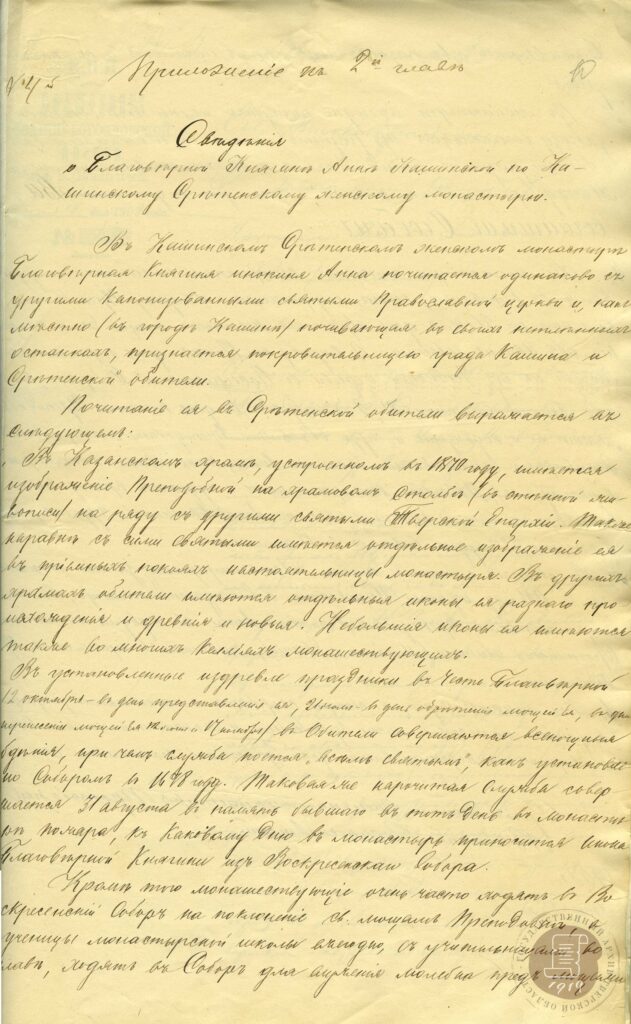 № 4й
Приложеніе къ 2й главѣ
10
Свѣдѣнія
о Благовѣрной Княгинѣ Аннѣ Кашинской по Ка-
шинскому Срѣтенскому женскому монастырю.
Въ Кашинскомъ Срѣтенскомъ женскомъ монастырѣ
Благовѣрная Княгиня инокиня Анна почитается одинаково съ
другими канонизованными святыми Православной церкви и, какъ
мѣстно (въ городѣ Кашинѣ) почивающая въ своихъ нетлѣнныхъ
останкахъ, признается покровительницею града Кашина и
Срѣтенской обители.
Почитаніе ея въ Срѣтенской обители выражается въ
слѣдующемъ:
Въ Казанскомъ храмѣ, устроенномъ въ 1870 году, имѣется
изображеніе Преподобной на храмовомъ столбѣ (въ стѣнной жи-
вописи) на ряду съ другими святыми Тверской Епархіи. Также
наравнѣ съ сими святыми имѣется отдѣльное изображеніе ея
въ пріемныхъ покояхъ настоятельницы монастыря. Въ другихъ
храмахъ обители имѣются отдѣльныя иконы ея разнаго про
исхожденія и древнія и новыя. Небольшія иконы ея имѣются
также во многихъ келліяхъ монашествующихъ.
Въ установленные издревле праздники въ честь Благовѣрной
(2 октября – въ день преставленія ея, 21 іюля – въ день обрѣтенія мощей ея, въ дни
перенесенія мощей ея 12 іюня и) въ Обители совершаются всенощныя
бдѣнія, при чемъ служба поется „всѣмъ святымъ", какъ установле
но Соборомъ въ 1678 году. Таковая же нарочитая служба совер
шается 31 августа въ память бывшаго въ тотъ день въ монасты
рѣ пожара, къ каковому дню въ монастырь приносится икона
Благовѣрной Княгини изъ Воскресенскаго Собора.
Кромѣ того монашествующіе очень часто ходятъ въ Во
скресенскій Соборъ на поклоненіе св. мощамъ Преподобной, а
ученицы монастырской школы ежегодно, съ учительницами во
главѣ, ходятъ въ Соборъ для служенія молебна предъ мощами
ГОСУДАРСТВЕННЫЙ АРХИВ ТВЕРСКОЙ ОБЛАСТИ
1919